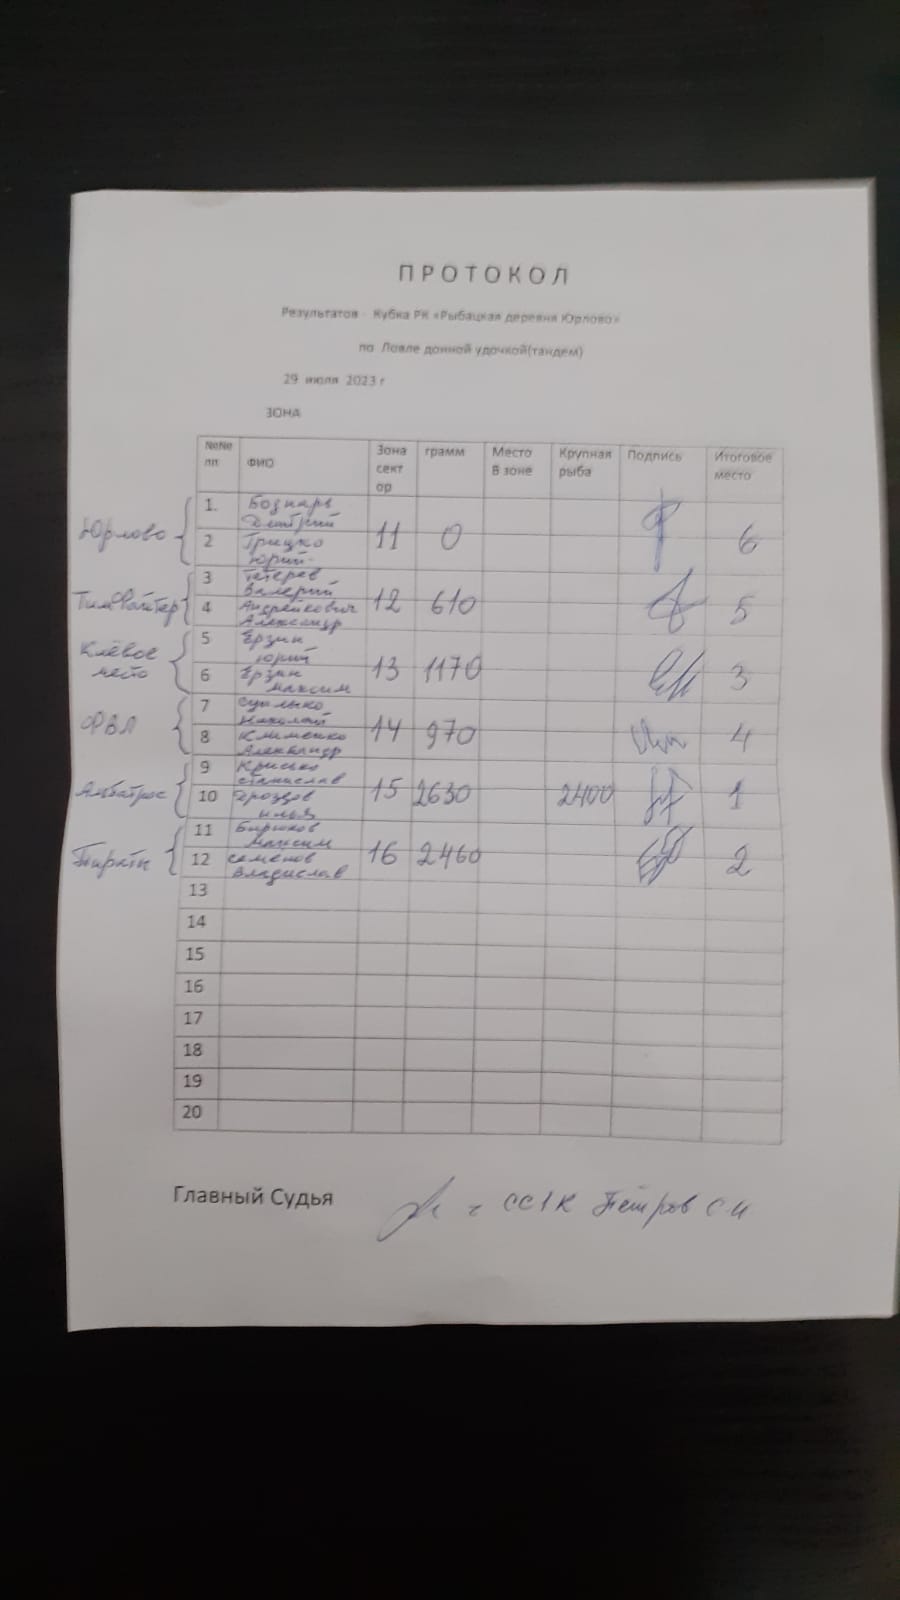 ПРОТОКОЛ
Результатов - Кубка РК «Рыбацкая деревня Юрлово»
по Ловле донной удочкой(тандем)
29 июля 2023 г
ЗОНА
№№ пп ФИО Зона сект ор грамм Место В зоне Крупная рыба Подпись Итоговое место
Юрлово
1. Боднарь Дмитрий
2 Грицко Юрий
11 0 6
ТимФайтер
3 Тетерев Валерий
4 Андрейкович Александр
12 610 5
Клёвое место
5 Ерзин Юрий
6 Ерзин Максим
13 1170 3
ФВЛ
7 Николай
8 Клименко Александр
14 970 4
Альбатрос
9 Станислав
10 Дроздов Илья
15 2630 2400 1
Пираты
11 Бирюков Максим
12 Семёнов Владислав
16 2460 2
13
14
15
16
17
18
19
20
Главный Судья СС1К Петров С.И